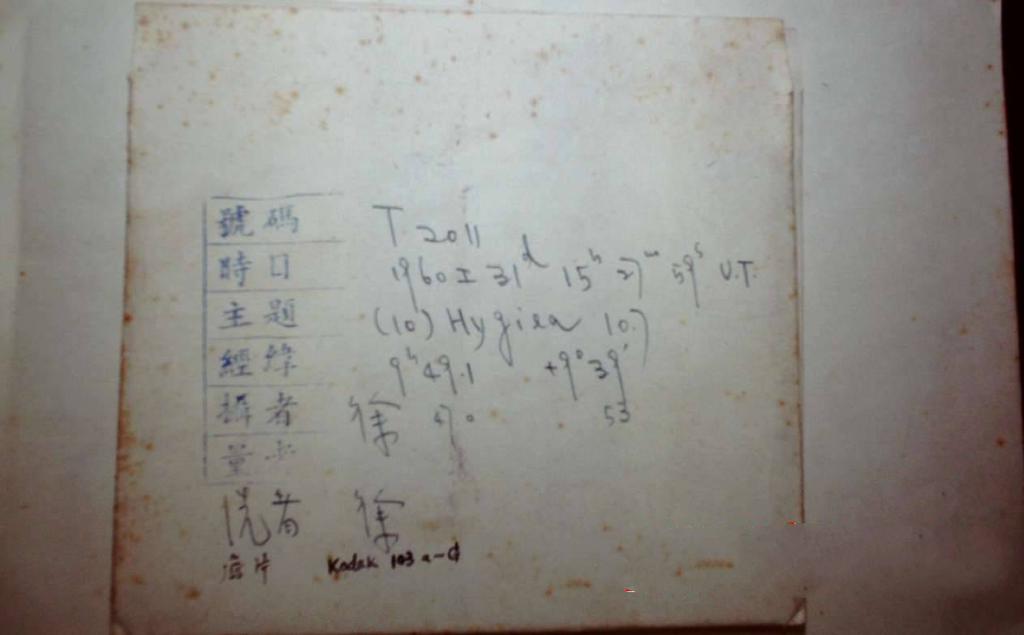 號碼 T 2011
時日 1960 I 31ᵈ 15ʰ 27ᵐ 59ˢ U.T.
主題 (10) Hygiea 10.7
經緯 9ʰ49.1 +9°39'
攝者 徐 47.0 53
量者
洗者 徐
底片 Kodak 103 a-d